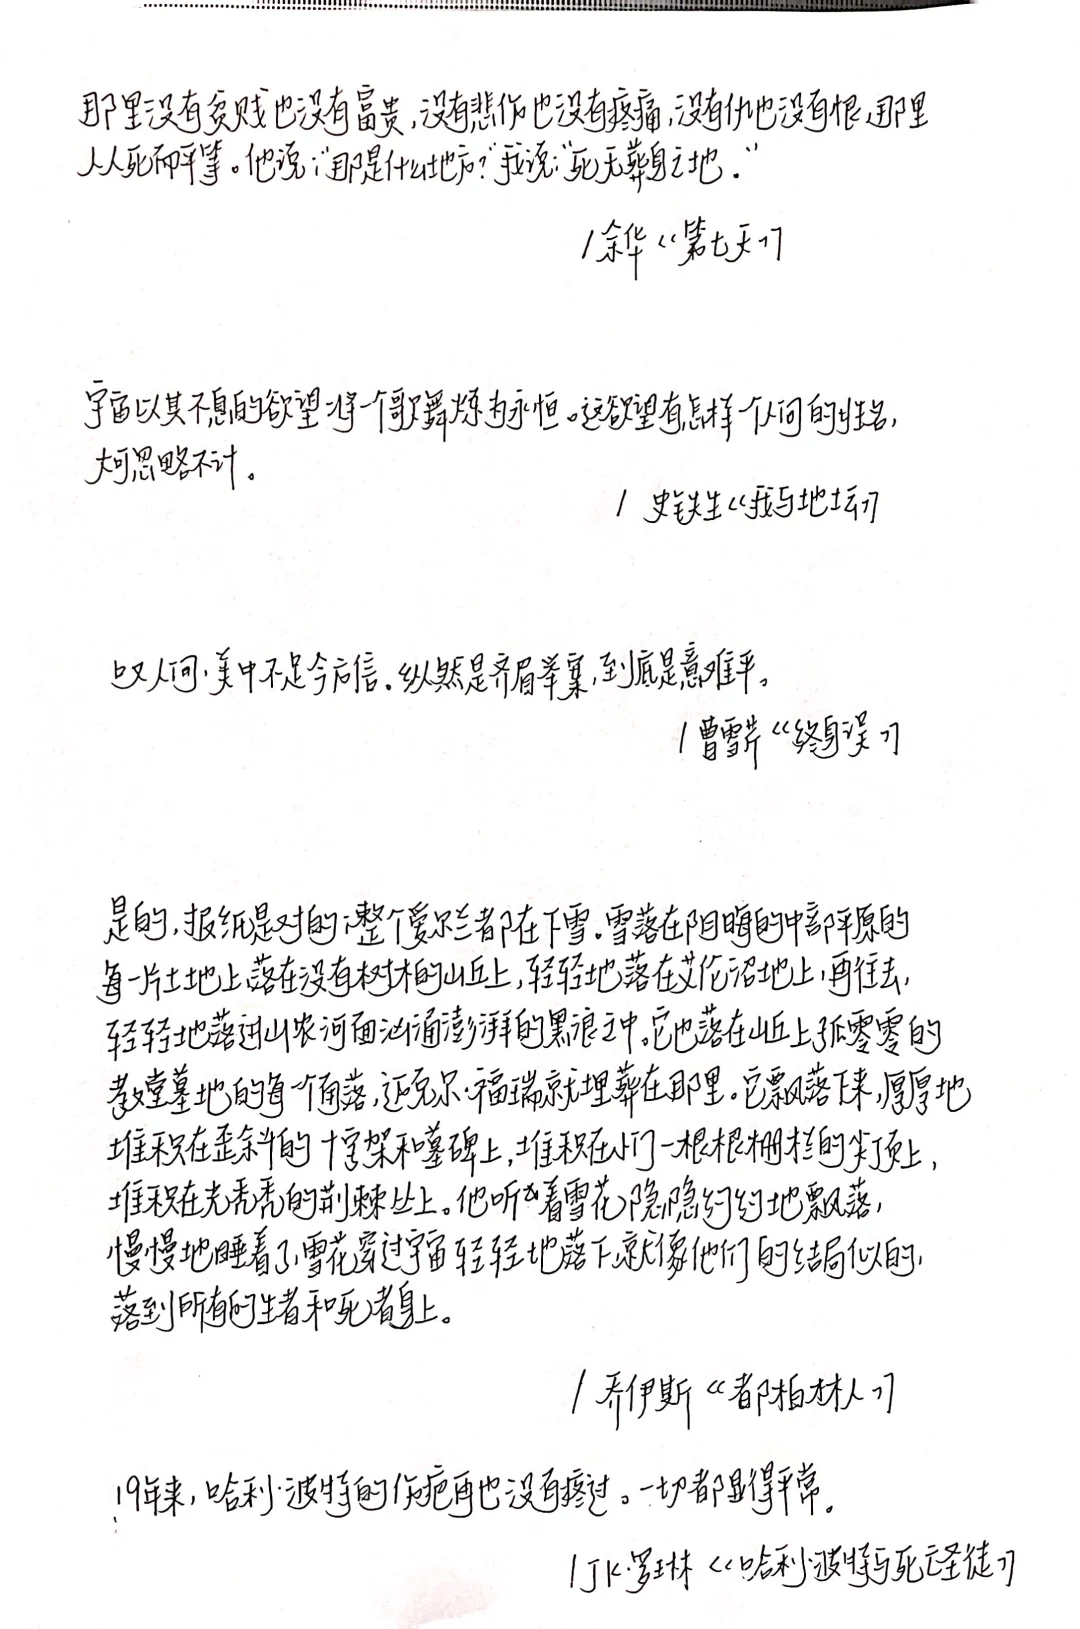 那里没有贫贱也没有富贵,没有悲伤也没有疼痛,没有仇也没有恨,那里
人人死而平等。他说:“那是什么地方?”我说:“死无葬身之地.”
/余华《第七天》
宇宙以其不息的欲望将一个歌舞炼为永恒。这欲望有怎样一个人间的姓名,
大可忽略不计。
/ 史铁生《我与地坛》
叹人间,美中不足今方信.纵然是齐眉举案,到底是意难平。
/曹雪芹《终身误》
是的,报纸是对的:整个爱尔兰都在下雪.雪落在阴晦的中部平原的
每一片土地上,落在没有树木的山丘上,轻轻地落在艾伦沼地上,再往去,
轻轻地落进山农河面汹涌澎湃的黑浪之中。它也落在山丘上孤零零的
教堂墓地的每一个角落,迈克尔·福瑞就埋葬在那里。它飘落下来,厚厚地
堆积在歪斜的十字架和墓碑上,堆积在小门一根根栅栏的尖顶上,
堆积在光秃秃的荆棘丛上。他听着雪花隐隐约约地飘落,
慢慢地睡着了,雪花穿过宇宙轻轻地落下,就像他们的结局似的,
落到所有的生者和死者身上。
/ 乔伊斯《都柏林人》
19年来,哈利·波特的伤疤再也没有疼过。一切都显得平常.
/JK·罗琳《哈利·波特与死亡圣徒》